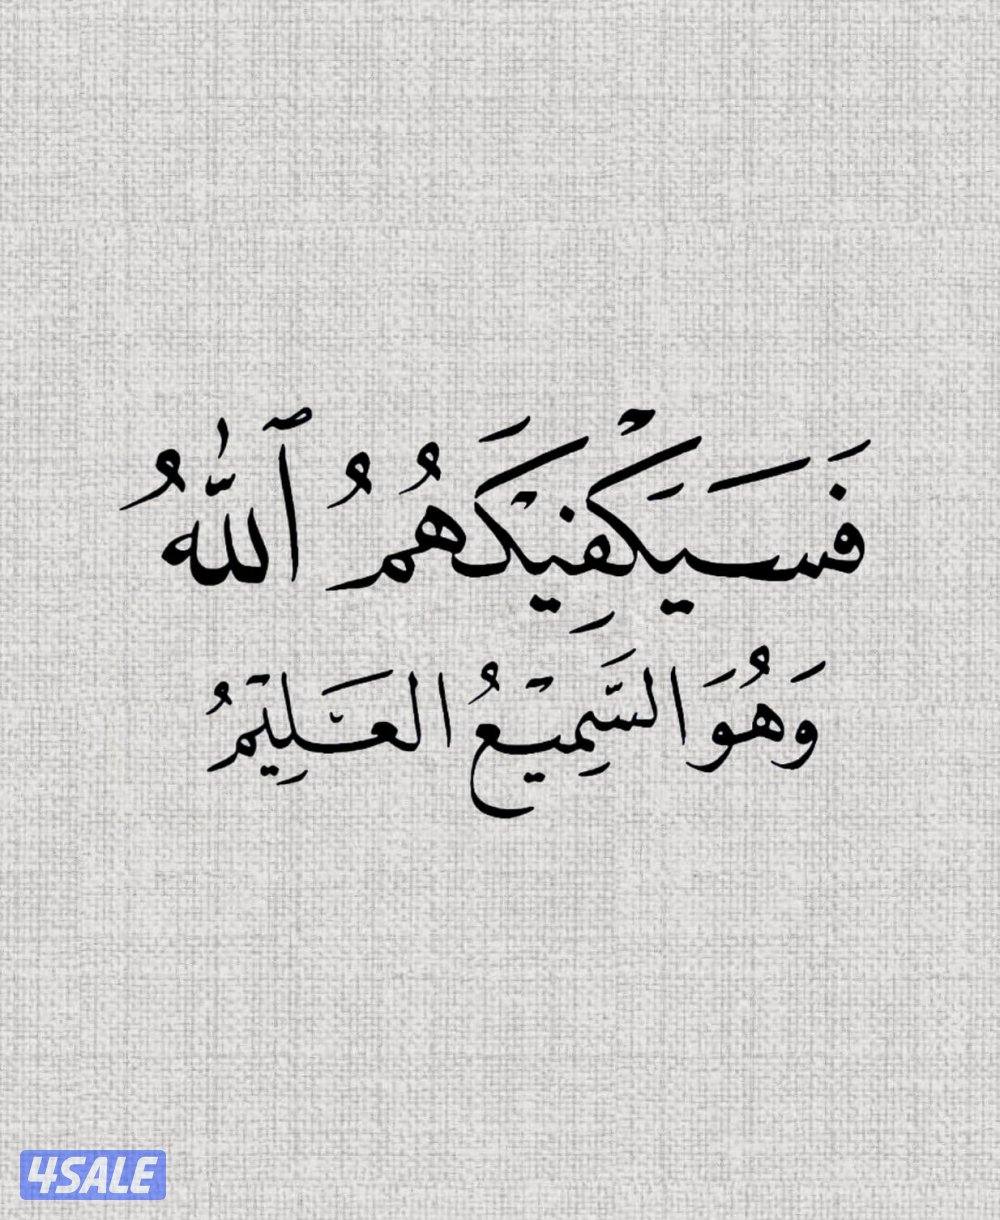 فَسَيَكْفِيْكَهُمُ ٱللّٰهُ
وَهُوَ السَّمِيْعُ العَلِيْمُ
4SALE